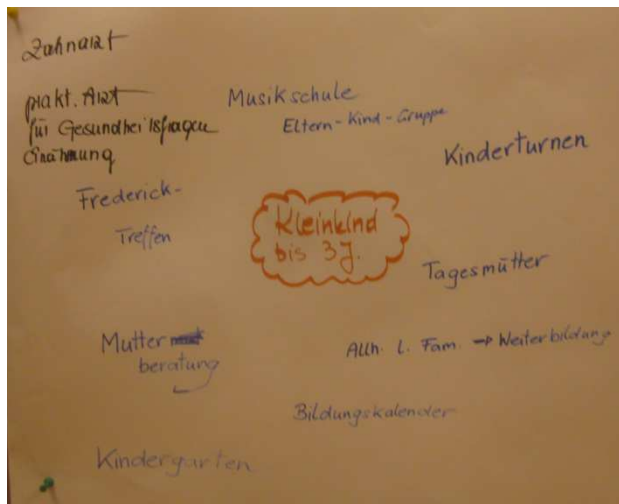 Zahnarzt
prakt. Arzt
für Gesundheitsfragen
Ernährung
Musikschule
Eltern-Kind-Gruppe
Kinderturnen
Frederick-
Treffen
Kleinkind
bis 3J.
Tagesmütter
Mutter
beratung
L. Fam. → Weiterbildung
Bildungskalender
Kindergarten